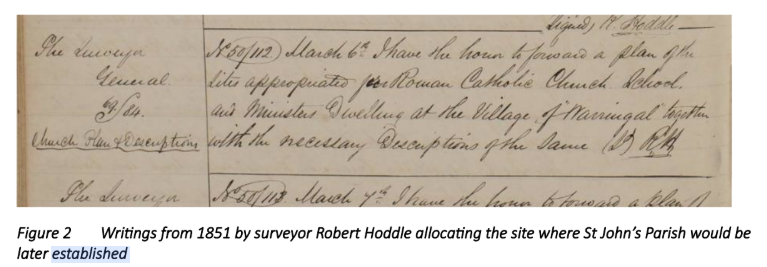 Signed, R. Hoddle
The Surveyor
General.
9/84.
Church Plan & Descriptions
No 50/112) March 6th I have the honor to forward a plan of the
Sites appropriated for Roman Catholic Church School.
and Ministers Dwelling at the Village of Warringal together
with the necessary Descriptions of the Same (Sd) RH
The Surveyor
No 50/113 March 7th I have the honor to forward a plan of
Figure 2 Writings from 1851 by surveyor Robert Hoddle allocating the site where St John's Parish would be
later established